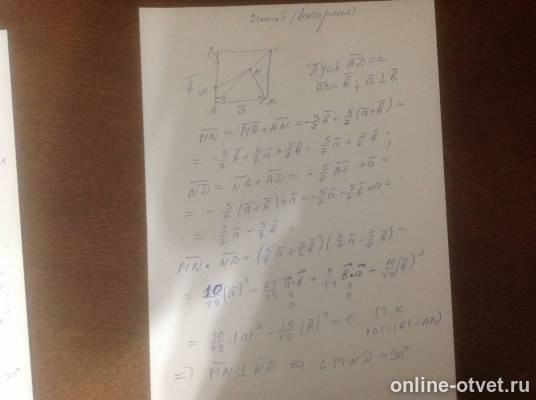 2 способ (векторный)
B C
N
M
b̄
A ā D
Пусть A̅D̅ = a
A̅B̅ = b̄; ā ⊥ b̄
M̅N̅ = M̅A̅ + A̅N̅ = -3/7 b̄ + 5/7 (ā + b̄) =
= -3/7 b̄ + 5/7 ā + 5/7 b̄ = 5/7 ā + 2/7 b̄;
N̅D̅ = N̅A̅ + A̅D̅ = -5/7 A̅C̅ + ā =
= -5/7 (ā + b̄) + ā = -5/7 ā - 5/7 b̄ + ā =
= 2/7 ā - 5/7 b̄;
M̅N̅ · N̅D̅ = (5/7 ā + 2/7 b̄)(2/7 ā - 5/7 b̄) =
= 10/49 (ā)² - 25/49 ā·b̄ + 4/49 b̄·ā - 10/49 (b̄)²
0 0
= 10/49 · |a|² - 10/49 |b̄|² = 0 (т.к
|a| = |b| = AB)
=> M̅N̅ ⊥ N̅D̅ => ∠MND = 90°
x
90°
online-otvet.ru